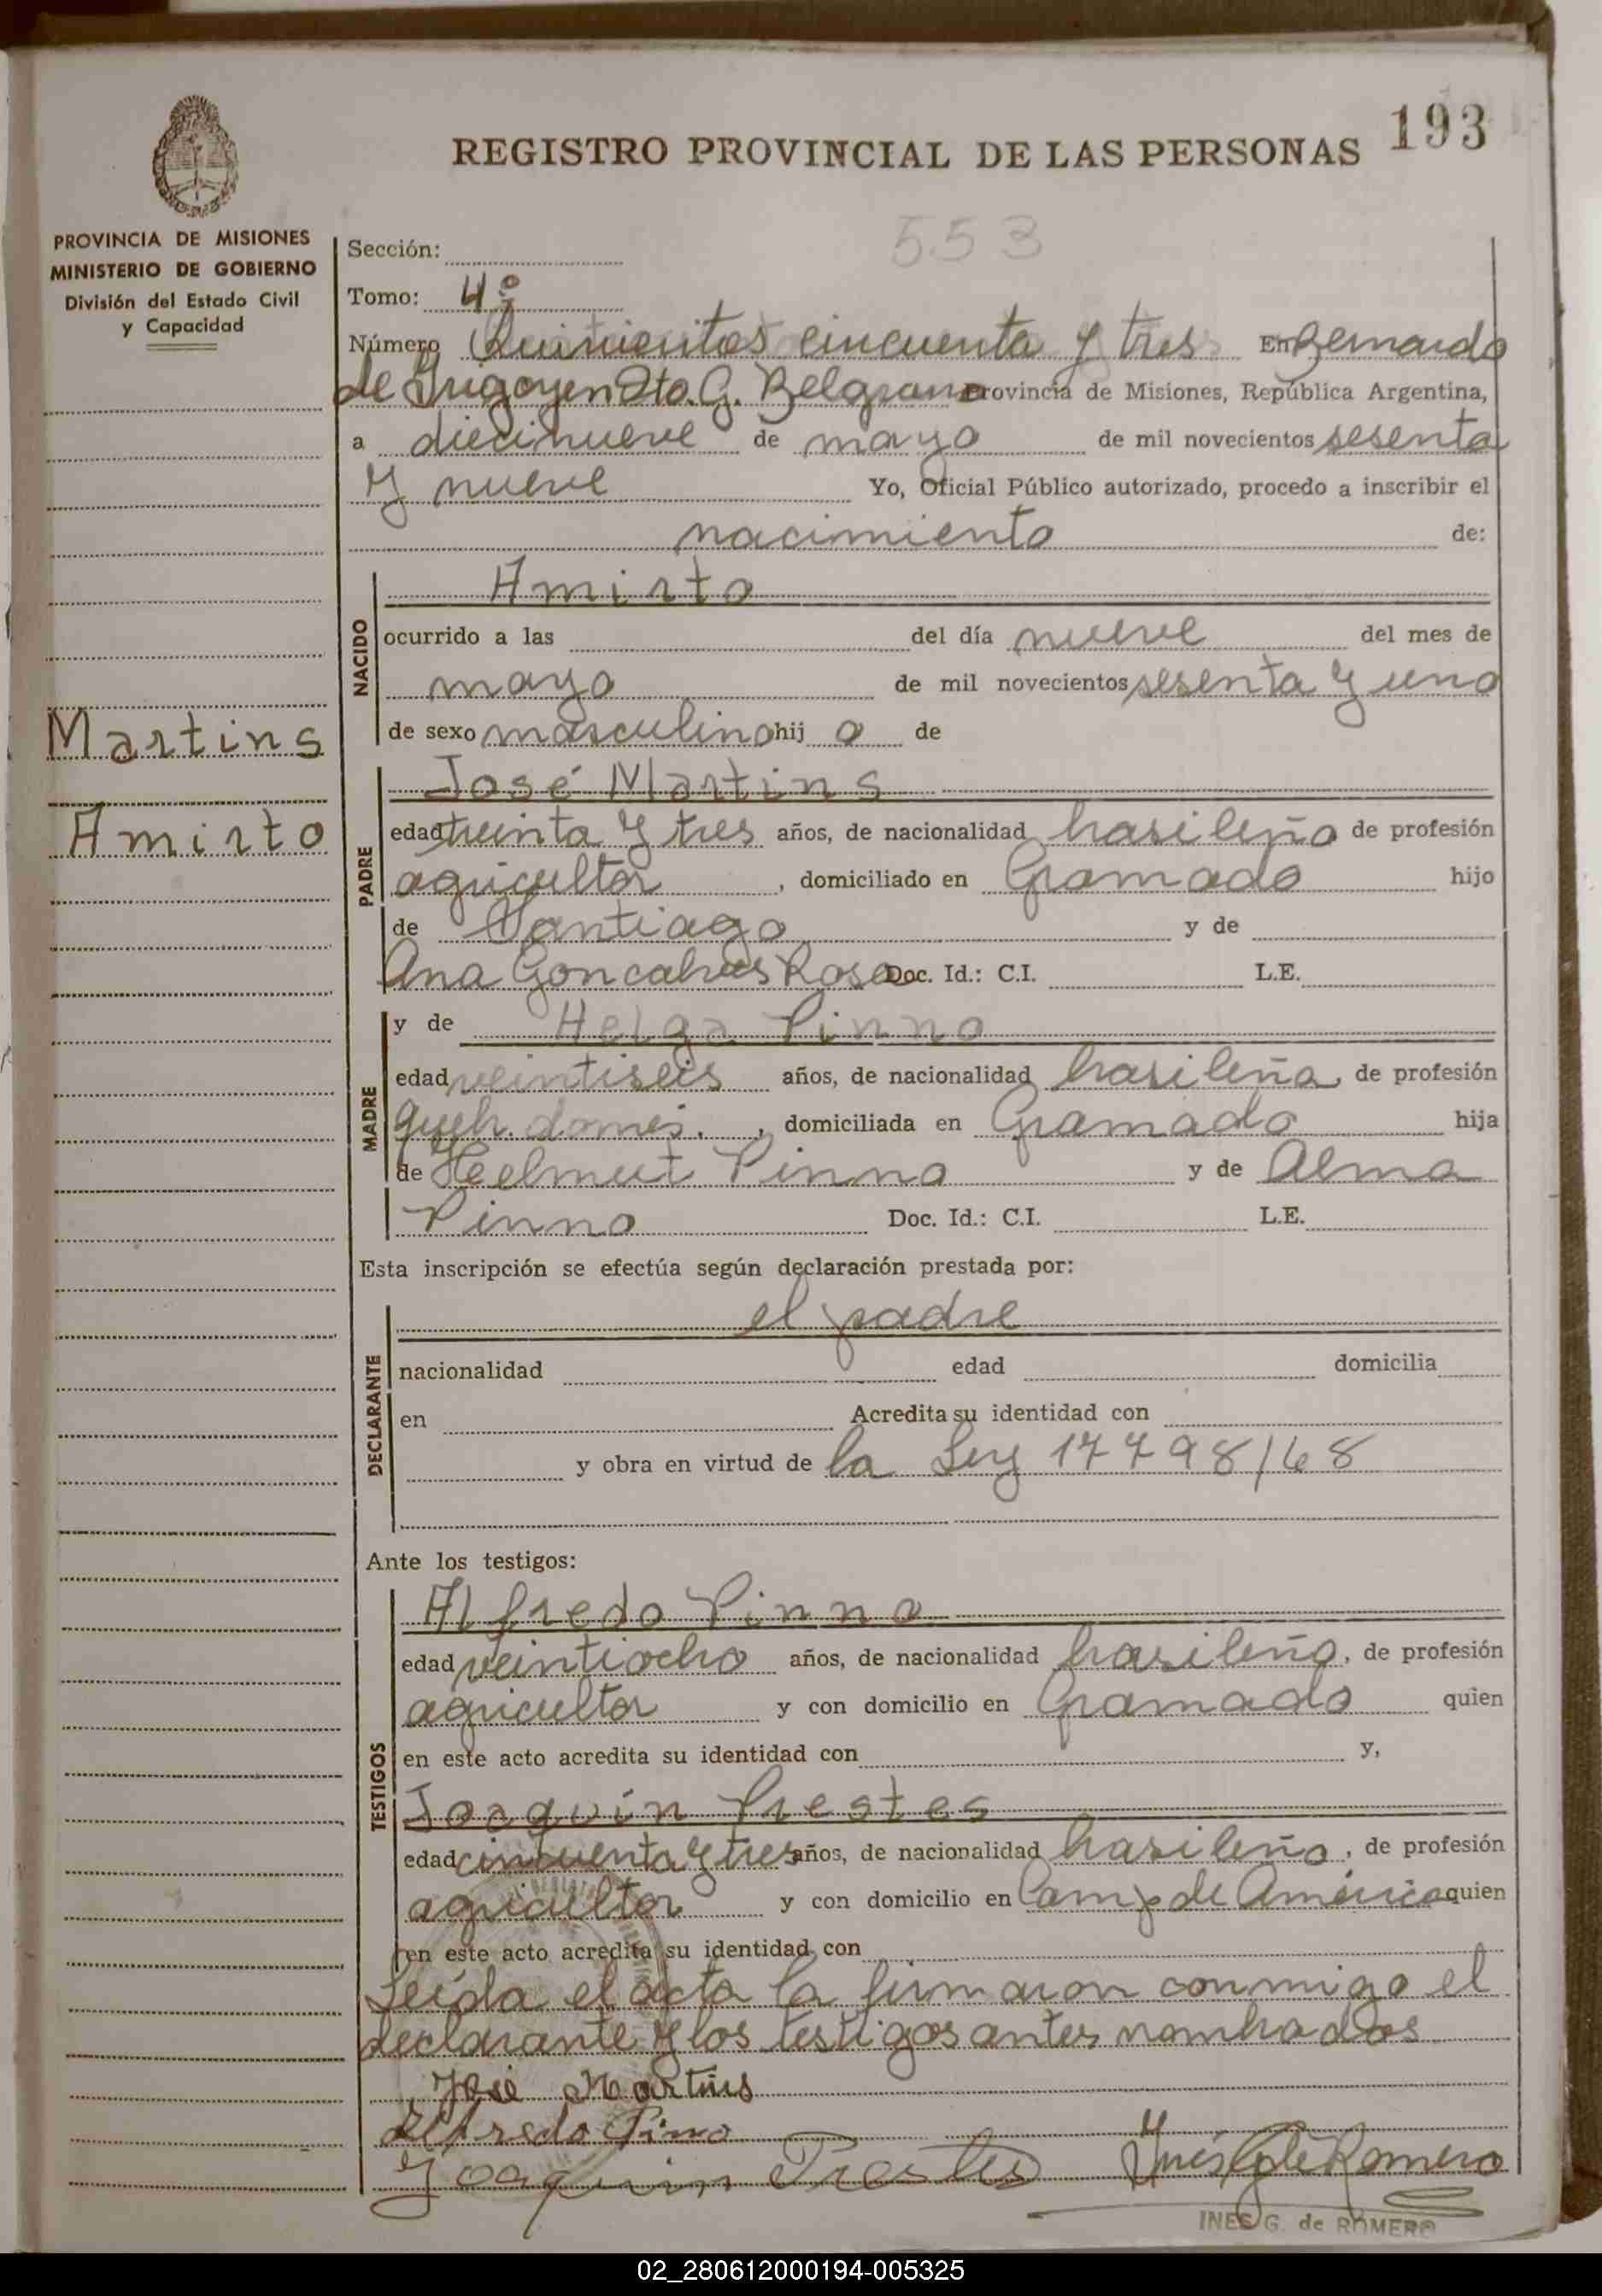 193
REGISTRO PROVINCIAL DE LAS PERSONAS
553
PROVINCIA DE MISIONES
MINISTERIO DE GOBIERNO
División del Estado Civil
y Capacidad
Sección:
Tomo: 4º
Número Quinientos cincuenta y tres En Bernardo
de Irigoyen Dto. G. Belgrano Provincia de Misiones, República Argentina,
a diecinueve de mayo de mil novecientos sesenta
y nueve Yo, Oficial Público autorizado, procedo a inscribir el
nacimiento de:
NACIDO
Amirto
ocurrido a las del día nueve del mes de
mayo de mil novecientos sesenta y uno
de sexo masculino hij o de
Martins
Amirto
PADRE
José Martins
edad treinta y tres años, de nacionalidad brasileño de profesión
agricultor, domiciliado en Gramado hijo
de Santiago y de
Ana Goncalves Rosa Doc. Id.: C.I. L.E.
MADRE
y de Helga Pinno
edad veintiseis años, de nacionalidad brasileña, de profesión
queh. domés. , domiciliada en Gramado hija
de Heelmut Pinno y de Alma
Pinno Doc. Id.: C.I. L.E.
Esta inscripción se efectúa según declaración prestada por:
DECLARANTE
el padre
nacionalidad edad domicilia
en Acredita su identidad con
y obra en virtud de la Ley 17798/68
Ante los testigos:
TESTIGOS
Alfredo Pinno
edad veintiocho años, de nacionalidad brasileño, de profesión
agricultor y con domicilio en Gramado quien
en este acto acredita su identidad con y,
Joaquín Prestes
edad cincuenta y tres años, de nacionalidad brasileño, de profesión
agricultor y con domicilio en Camp de América quien
en este acto acredita su identidad con
Leída el acta la firmaron conmigo el
declarante y los testigos antes nombrados
José Martins
Alfredo Pino
Joaquim Prestes Inés G de Romero
INES G. de ROMERO
02_280612000194-005325